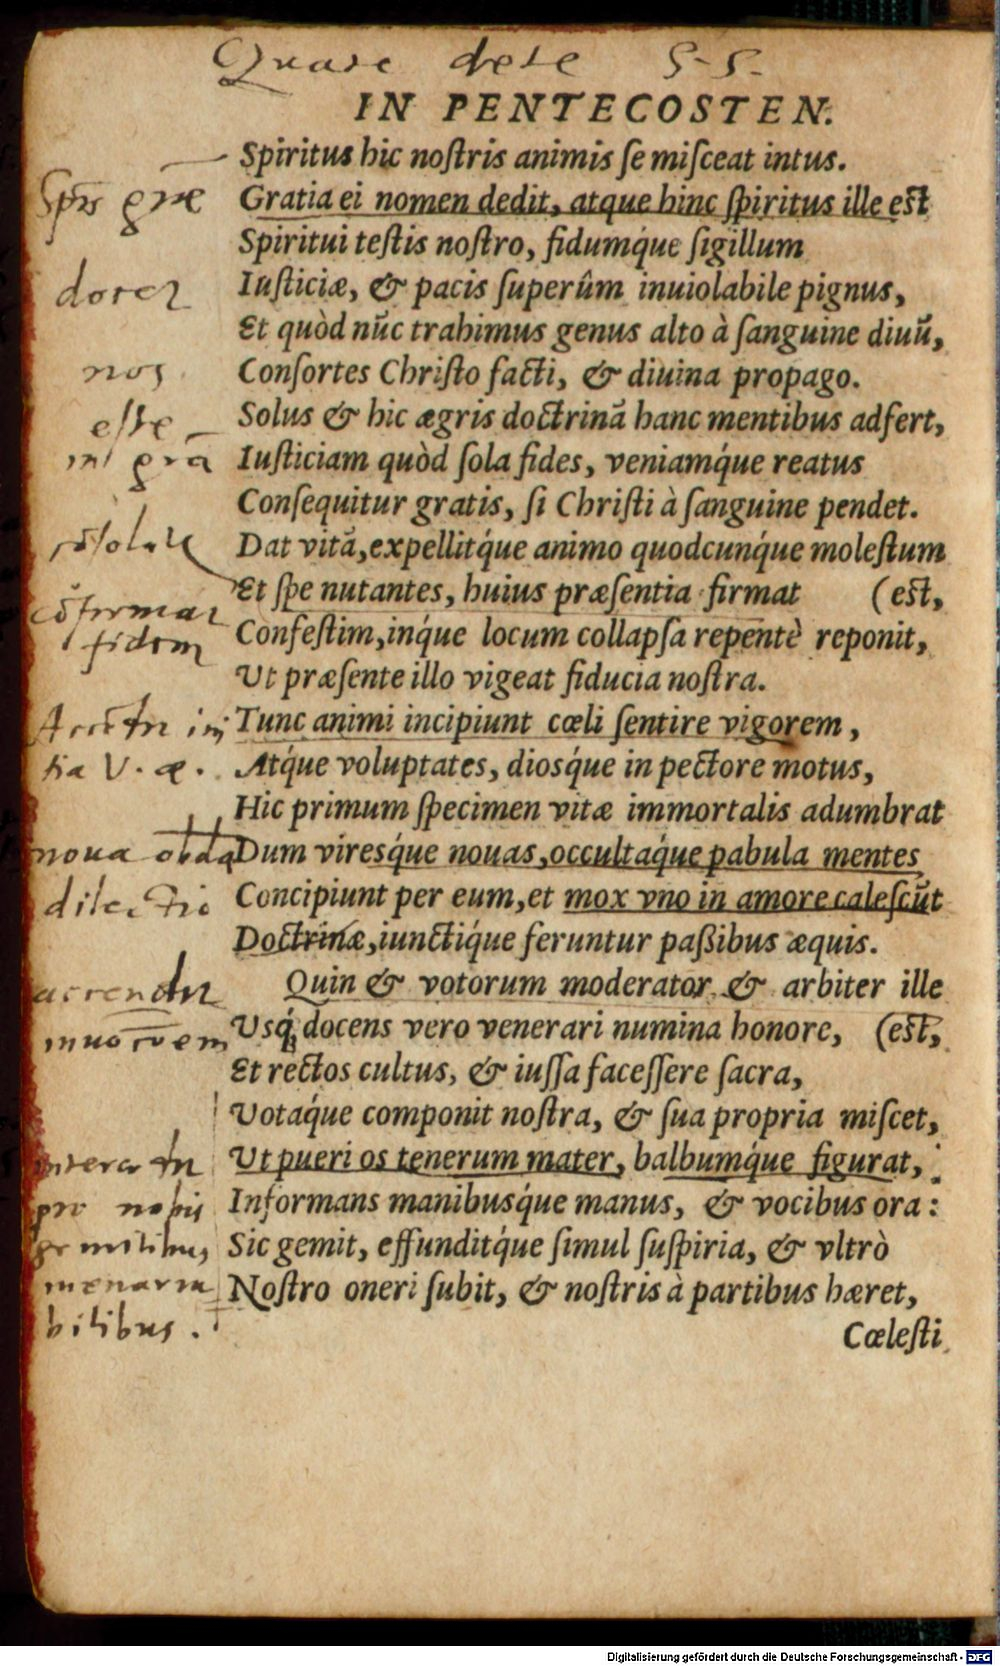 IN PENTECOSTEN.
Spiritus hic noſtris animis ſe miſceat intus.
Gratia ei nomen dedit, atque hinc ſpiritus ille eſt
Spiritui teſtis noſtro, fidumq́ue ſigillum
Iuſticiæ, & pacis ſuperûm inuiolabile pignus,
Et quòd nũc trahimus genus alto à ſanguine diuũ,
Conſortes Chriſto facti, & diuina propago.
Solus & hic ægris doctrinã hanc mentibus adfert,
Iuſticiam quòd ſola fides, veniamq́ue reatus
Conſequitur gratis, ſi Chriſti à ſanguine pendet.
Dat vitã, expellitq́ue animo quodcunq́ue moleſtum
Et ſpe nutantes, huius præſentia firmat (eſt,
Confeſtim, inq́ue locum collapſa repentè reponit,
Ut præſente illo vigeat fiducia noſtra.
Tunc animi incipiunt cœli ſentire vigorem,
Atq́ue voluptates, diosq́ue in pectore motus,
Hic primum ſpecimen vitæ immortalis adumbrat
Dum viresq́ue nouas, occultaq́ue pabula mentes
Concipiunt per eum, et mox vno in amore caleſcũt
Doctrinæ, iunctiq́ue feruntur paßibus æquis.
Quin & votorum moderator & arbiter ille
Usq́; docens vero venerari numina honore, (eſt,
Et rectos cultus, & iuſſa faceſſere ſacra,
Votaq́ue componit noſtra, & ſua propria miſcet,
Ut pueri os tenerum mater, balbumq́ue figurat,
Informans manibusq́ue manus, & vocibus ora:
Sic gemit, effunditq́ue ſimul ſuſpiria, & vltrò
Noſtro oneri ſubit, & noſtris à partibus hæret,
Cœleſti
docet
nos
eſſe
fidem
noua
dilectio
pro nobis
gemitibus
menarra
bilibus.
Digitalisierung gefördert durch die Deutsche Forschungsgemeinschaft - DFG